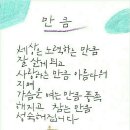 만큼
세상은 노력하는 만큼
잘 살게 되고
사랑하는 만큼 아름다워
지며
가슴은 여는 만큼 풍족
해지고 참는 만큼
성숙해집니다